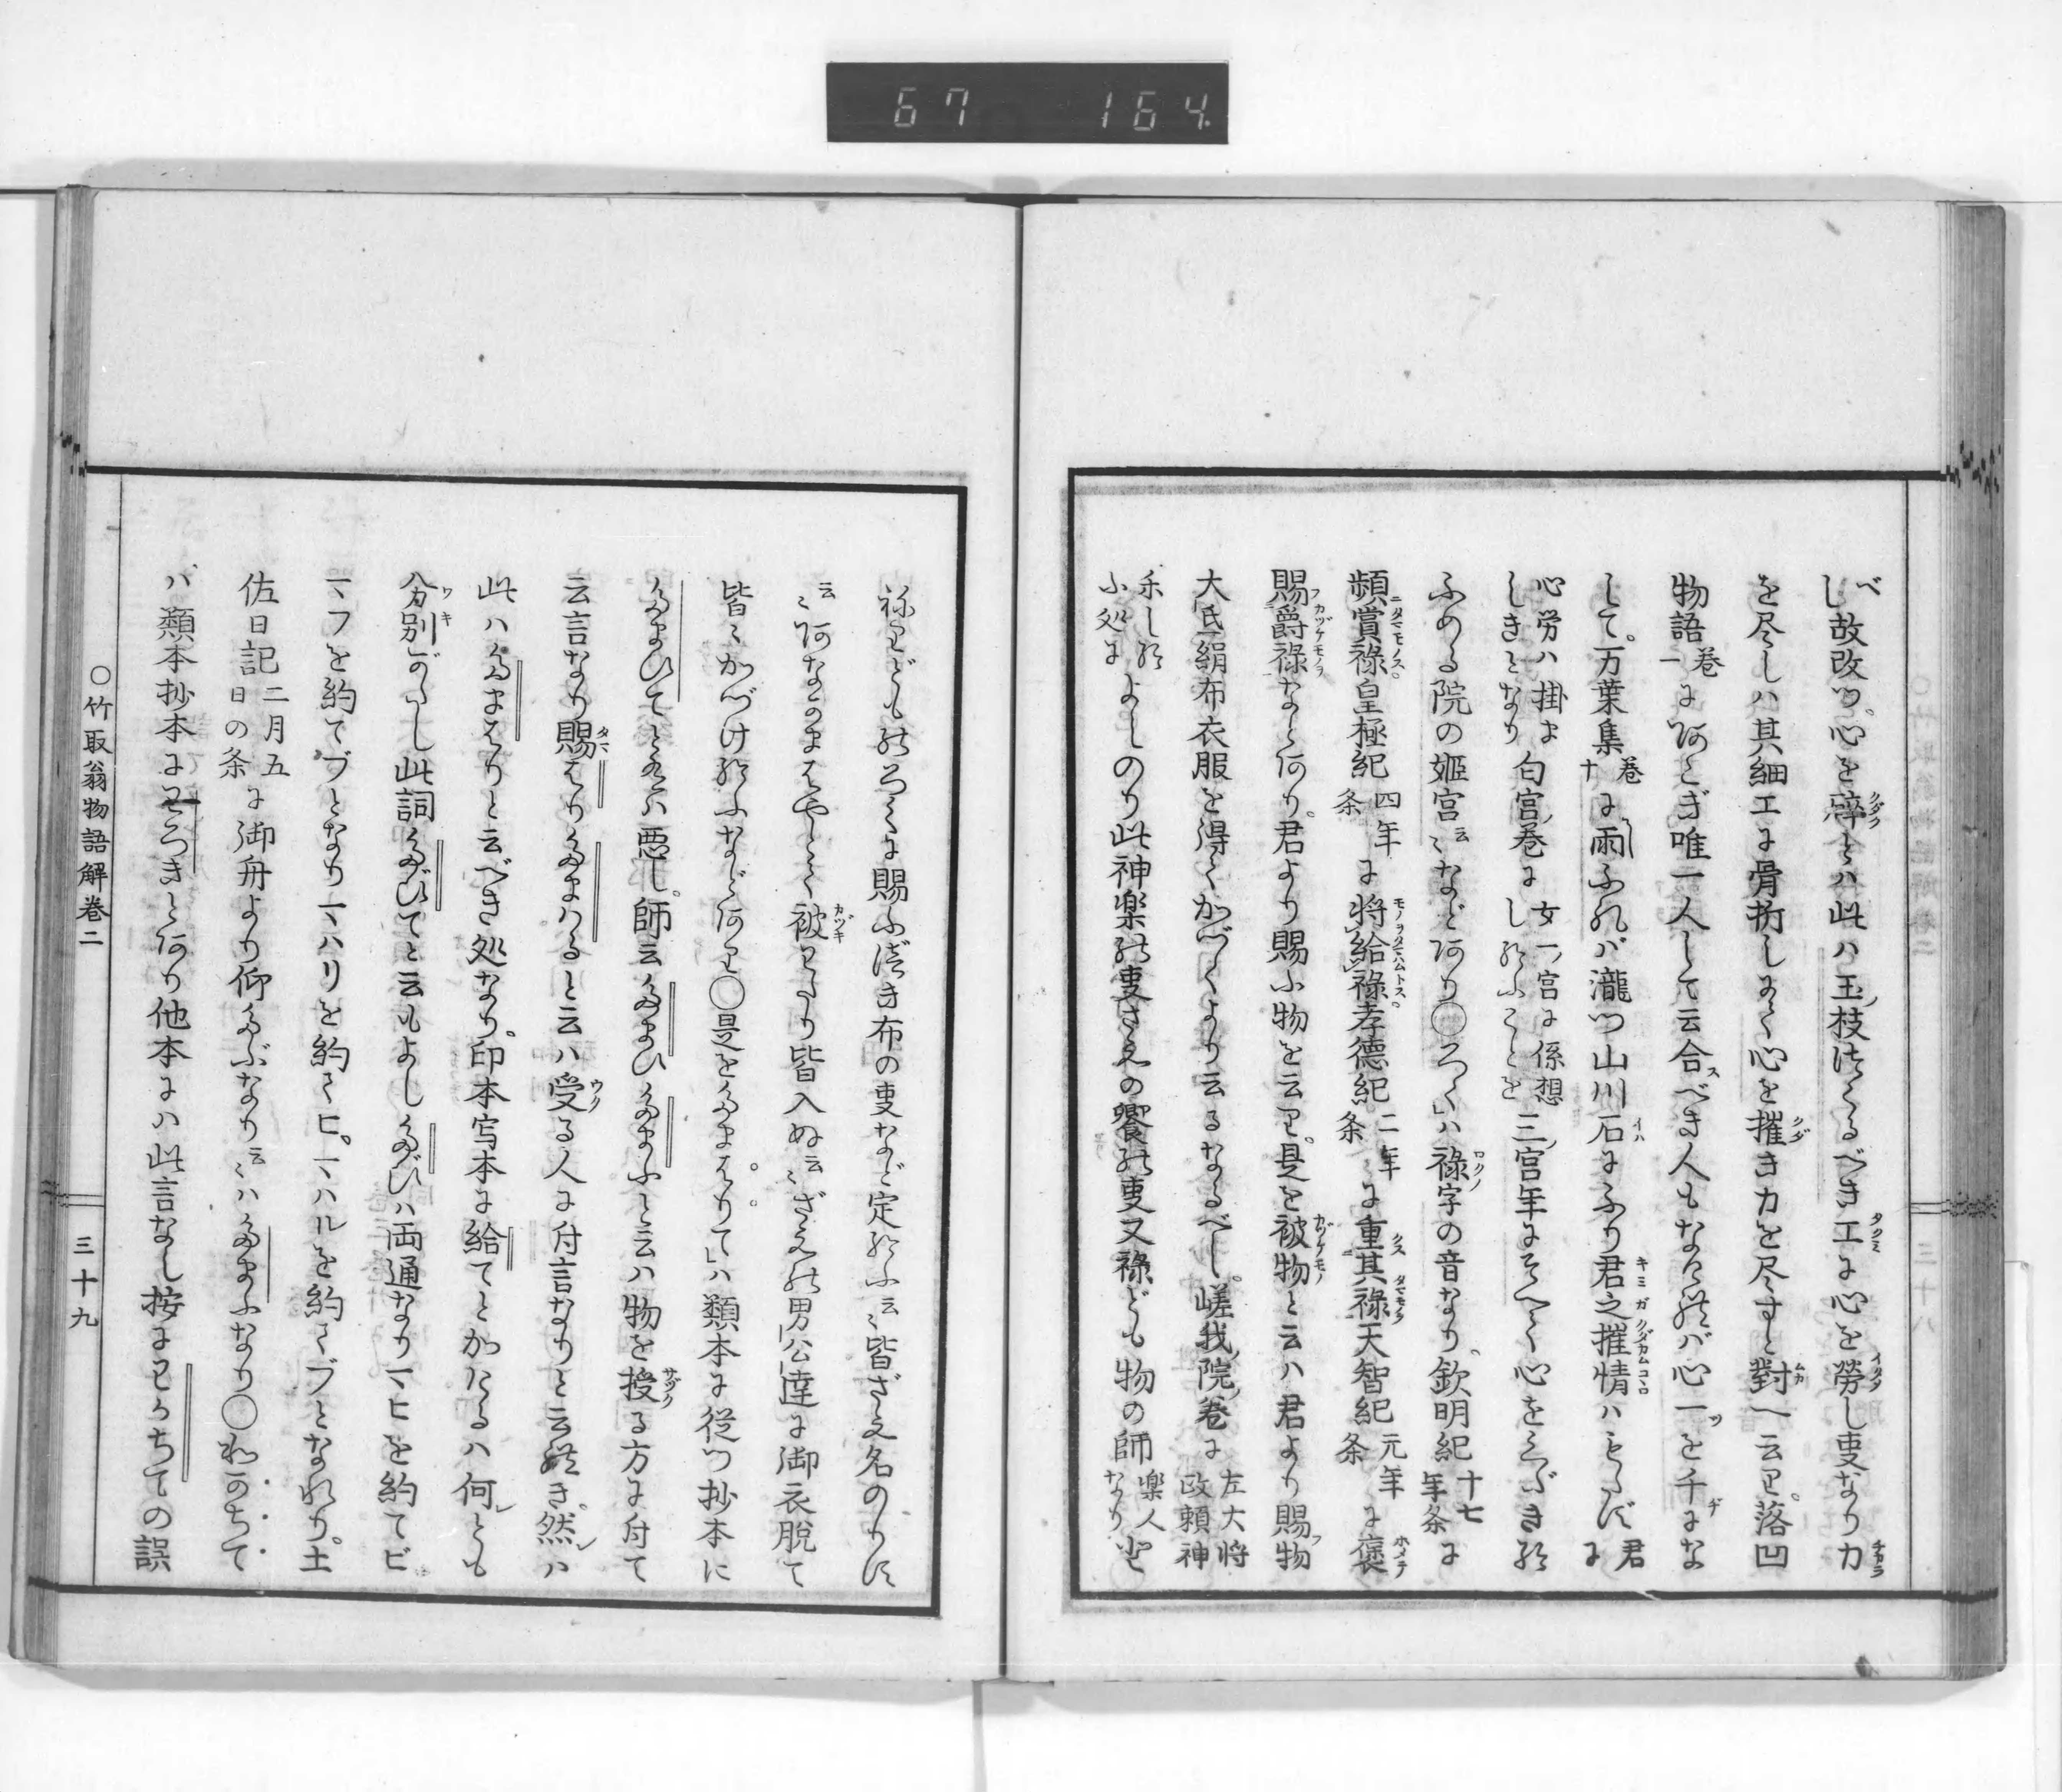 67 164.
べし故改つ。心を碎とは此は玉ノ枝つくるべき工に心を労し事なり力
を尽しは其細工に骨折しにて心を摧き力を尽すと對へ云り。落凹
物語一巻にあこぎ唯一人して云合べき人もなければ心一を千にな
して。万葉集巻十に雨ふれバ瀧つ山川石にふり君之摧情ハもたじ君に
心労ハ掛よしきとなり匂宮ノ巻にし給ふことを女一宮に係想三ノ宮年にそへて心をくだき給
ふめる院の姫宮云々などあり○ろくハ禄字の音なり。欽明紀十七年条に
頻賞禄。皇極紀四年条に将給禄。孝徳紀二年条に重其禄天智紀元年条に褒
賜爵禄などあり。君より賜ふ物を云り。是を被物と云ハ君より賜物
大氐絹布衣服を得てかづくより云るなるべし。嵯我ノ院ノ巻に左大将政頼神
楽し給ふ処によしのり此神楽の事さえの饗の事又禄ども物の師楽人なり
祢りどものろくに賜ふべき布の事など定給ふ云々皆ざえ名のりし
云々あなのまはやとて被りたり皆入ぬ云々ざえの男公達に御衣脱て
皆々かづけ給ふなどあり○是をたまはりて」ハ類本に従つ抄本に
たまひてとあるハ悪し。師云たまひたまふと云ハ物を授る方に付て
云言なり賜はりたまハると云ハ受る人に付言なりと云れき。然ハ
此ハたまはりと云べき処なり。印本写本に給てとかたるハ何とも
分別がたし此詞たびてと云もよしたびハ両通なりマヒを約てビ
マフを約てブとなりマハリを約てヒ。マハルを約てブとなれり。土
佐日記二月五日の条に御舟より仰たぶなり云々ハたまふなり○わかちて
バ類本抄本にそろつきとあり他本にハ此言なし按にわかちての誤
○竹取翁物語解巻二
三十九